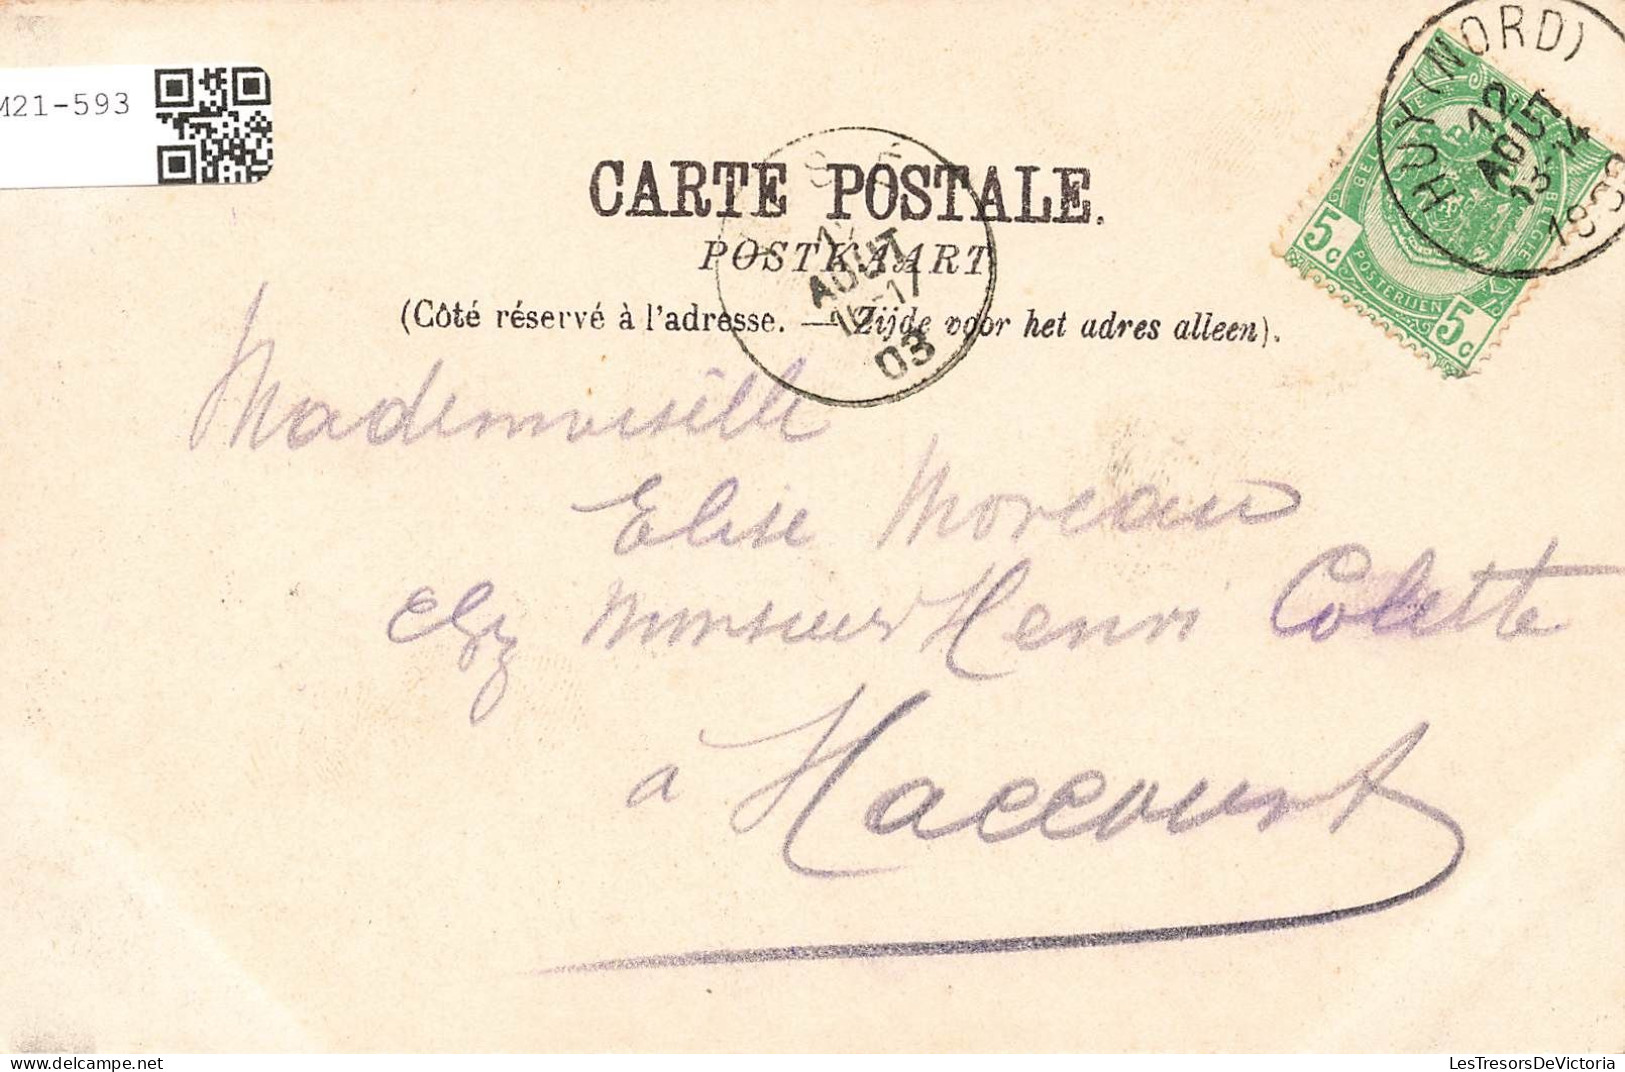 M21-593
HUY (NORD)
12
AOUT
13-14
CARTE POSTALE.
POSTKAART
(Côté réservé à l'adresse. — Zijde voor het adres alleen).
AOUT
03
5c
POSTERIJEN
5c
Mademoiselle
Elise Moreau
chez monsieur Henri Colette
à Haccourt
LesTresorsDeVictoria